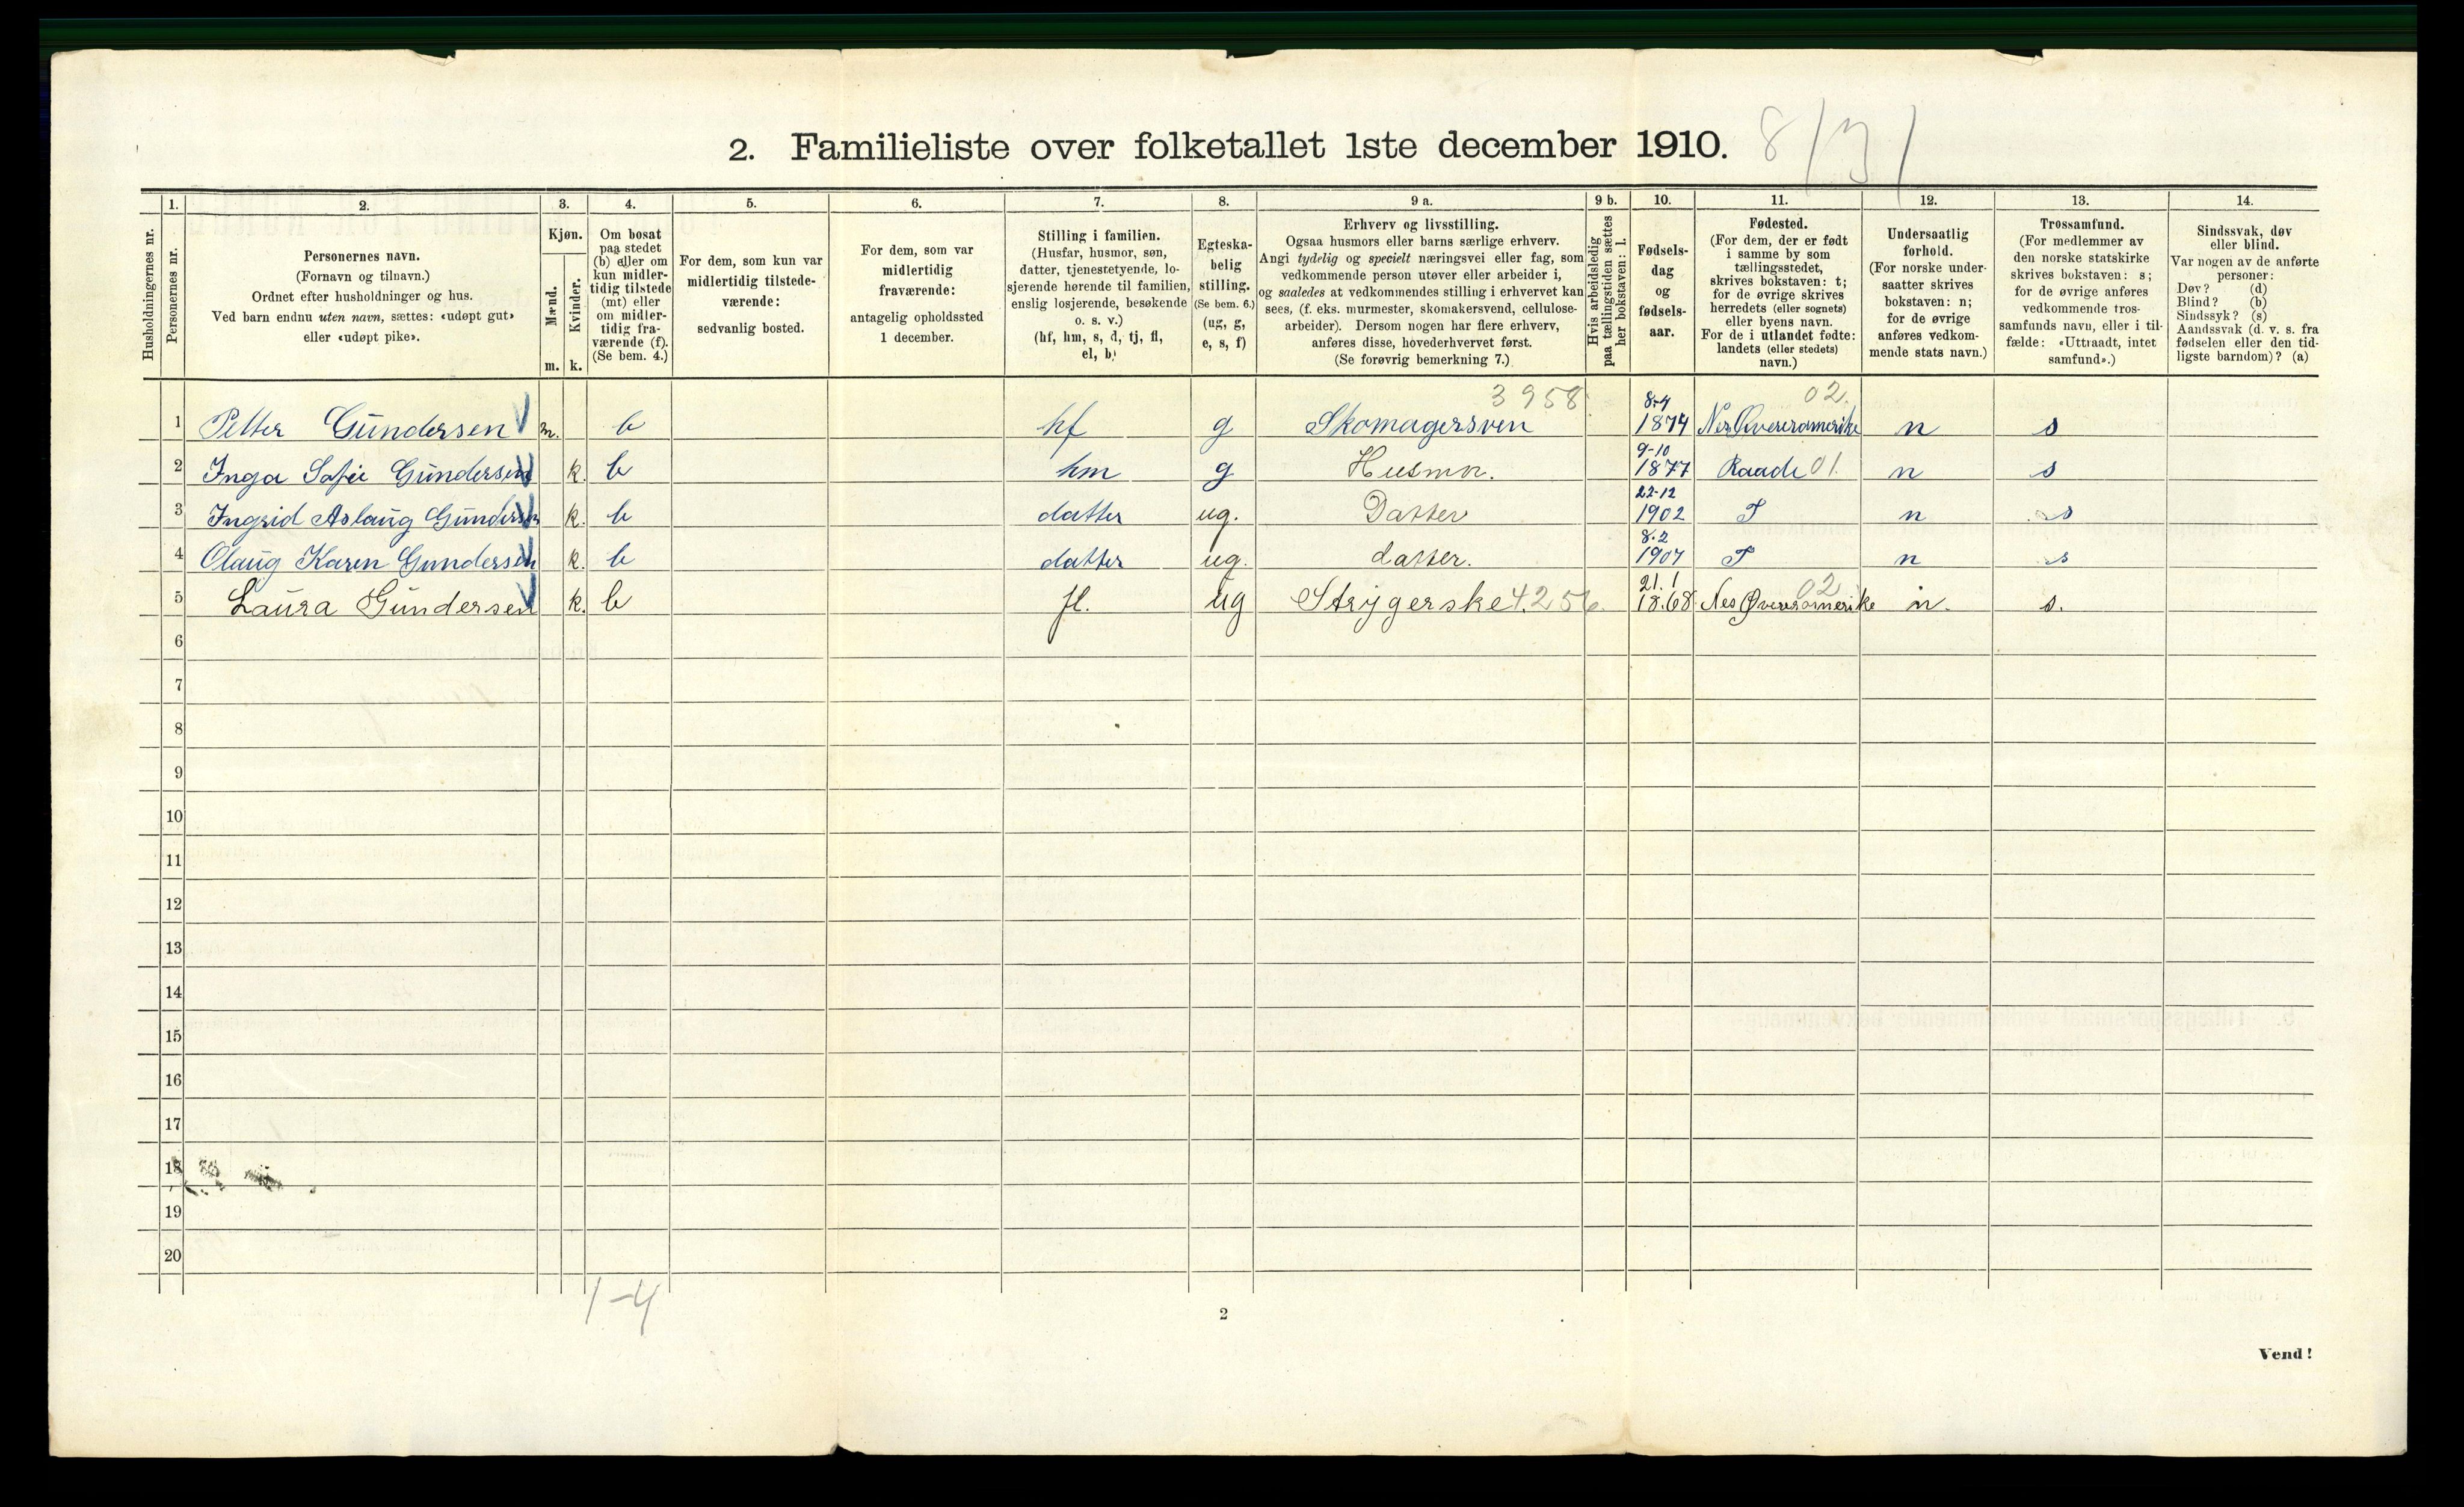 2. Familieliste over folketallet 1ste december 1910. 8/3/
Husholdningernes nr.
1. Personernes nr.
2.
Personernes navn.
(Fornavn og tilnavn.)
Ordnet efter husholdninger og hus.
Ved barn endnu uten navn, sættes: «udøpt gut»
eller «udøpt pike».
3.
Kjøn.
Mænd. m.
Kvinder. k.
4.
Om bosat
paa stedet
(b) eller om
kun midler-
tidig tilstede
(mt) eller
om midler-
tidig fra-
værende (f).
(Se bem. 4.)
5.
For dem, som kun var
midlertidig tilstede-
værende:
sedvanlig bosted.
6.
For dem, som var
midlertidig
fraværende:
antagelig opholdssted
1 december.
7.
Stilling i familien.
(Husfar, husmor, søn,
datter, tjenestetyende, lo-
sjerende hørende til familien,
enslig losjerende, besøkende
o. s. v.)
(hf, hm, s, d, tj, fl,
el, b)
8.
Egteska-
belig
stilling.
(Se bem. 6.)
(ug, g,
e, s, f)
9 a.
Erhverv og livsstilling.
Ogsaa husmors eller barns særlige erhverv.
Angi tydelig og specielt næringsvei eller fag, som
vedkommende person utøver eller arbeider i,
og saaledes at vedkommendes stilling i erhvervet kan
sees, (f. eks. murmester, skomakersvend, cellulose-
arbeider). Dersom nogen har flere erhverv,
anføres disse, hovederhvervet først.
(Se forøvrig bemerkning 7.)
9 b.
Hvis arbeidsledig
paa tællingstiden sættes
her bokstaven: l.
10.
Fødsels-
dag
og
fødsels-
aar.
11.
Fødested.
(For dem, der er født
i samme by som
tællingsstedet,
skrives bokstaven: t;
for de øvrige skrives
herredets (eller sognets)
eller byens navn.
For de i utlandet fødte:
landets (eller stedets)
navn.)
12.
Undersaatlig
forhold.
(For norske under-
saatter skrives
bokstaven: n;
for de øvrige
anføres vedkom-
mende stats navn.)
13.
Trossamfund.
(For medlemmer av
den norske statskirke
skrives bokstaven: s;
for de øvrige anføres
vedkommende tros-
samfunds navn, eller i til-
fælde: «Uttraadt, intet
samfund».)
14.
Sindssvak, døv
eller blind.
Var nogen av de anførte
personer:
Døv? (d)
Blind? (b)
Sindssyk? (s)
Aandssvak (d. v. s. fra
fødselen eller den tid-
ligste barndom)? (a)
3958 8-4 02.
1 Petter Gundersen m. b hf g Skomagersven 1874 Nes Øvereromerike n s
9-10
2 Inga Sofie Gundersen k. b hm g Husmor. 1877 Raade 01. n s
22-12
3 Ingrid Aslaug Gundersen k. b datter ug. Datter 1902 T n s
8.2
4 Olaug Karen Gundersen k. b datter ug. datter. 1907 T n s
21.1 02
5 Laura Gundersen k. b fl. ug Strygerske 4256. 18.68 Nes Øvereromerike n. s.
6
7
8
9
10
11
12
13
14
15
16
17
18
19
20
1-4
2
Vend!